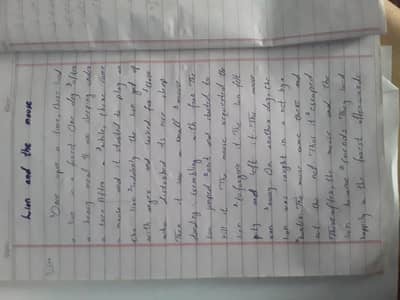 Lion and the mouse
Once upon a time there lived
a lion in a forest. One day after
a heavy meal It was sleeping under
a tree. After a while, there came
a mouse and it started to play on
the lion. Suddenly the lion got up
with anger and looked for those
who disturbed its nice sleep
Then it saw a small mouse
standing trembling with fear. The
lion jumped on it and started to
kill it. The mouse requested the
lion to forgive it. The lion felt
pity and left it. The mouse
ran away. On another day, the
lion was caught in a net by a
hunter. The mouse came there and
cut the net. Thus it escaped
Thereafter, the mouse and the
lion became friends. They lived
happily in the forest afterwards